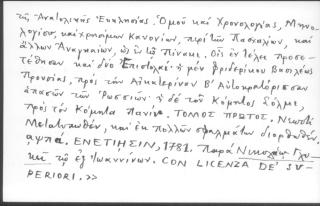 τῆς Ἀνατολικῆς Ἐκκλησίας. Ὁμοῦ καὶ Χρονολογίας, Μηνο-
λογίου, καὶ χρησίμων Κανονίων, περὶ τῶν Πασχαλίων, καὶ
ἄλλων Ἀναγκαίων, ὡς ἐν τῷ Πίνακι. Οἷς ἐν τέλει προσε-
τέθησαν καὶ δύο Ἐπιστολαὶ· ἡ μὲν Φριδερίκου Βασιλέως
Προυσίας, πρὸς τὴν Αἰκατερίναν Β' Αὐτοκρατόρισσαν
ἁπασῶν τῶν Ῥωσσιῶν· ἡ δὲ τοῦ Κόμητος Σόλμς,
πρὸς τὸν Κόμητα Πανίν. ΤΟΜΟΣ ΠΡΩΤΟΣ. Νεωστὶ
Μετατυπωθὲν, καὶ ἐκ πολλῶν σφαλμάτων διορθωθέν.
αψπα. ΕΝΕΤΙΗΣΙΝ, 1781. Παρὰ Νικολάῳ Γλυ-
κεῖ τῷ ἐξ Ἰωαννίνων. CON LICENZA DE' SU-
PERIORI.>>